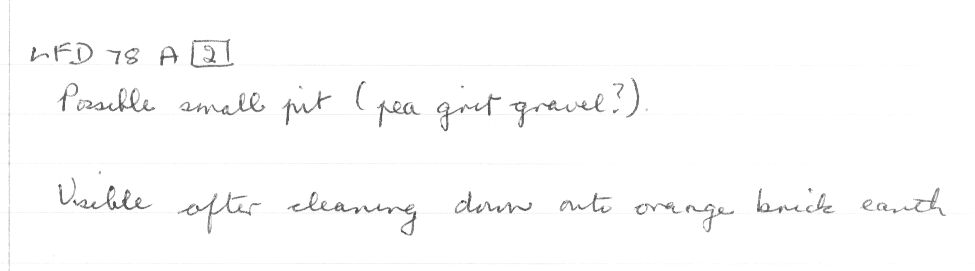 LFD 78 A 2
Possible small pit (pea grit gravel?).
Visible after cleaning down onto orange brick earth